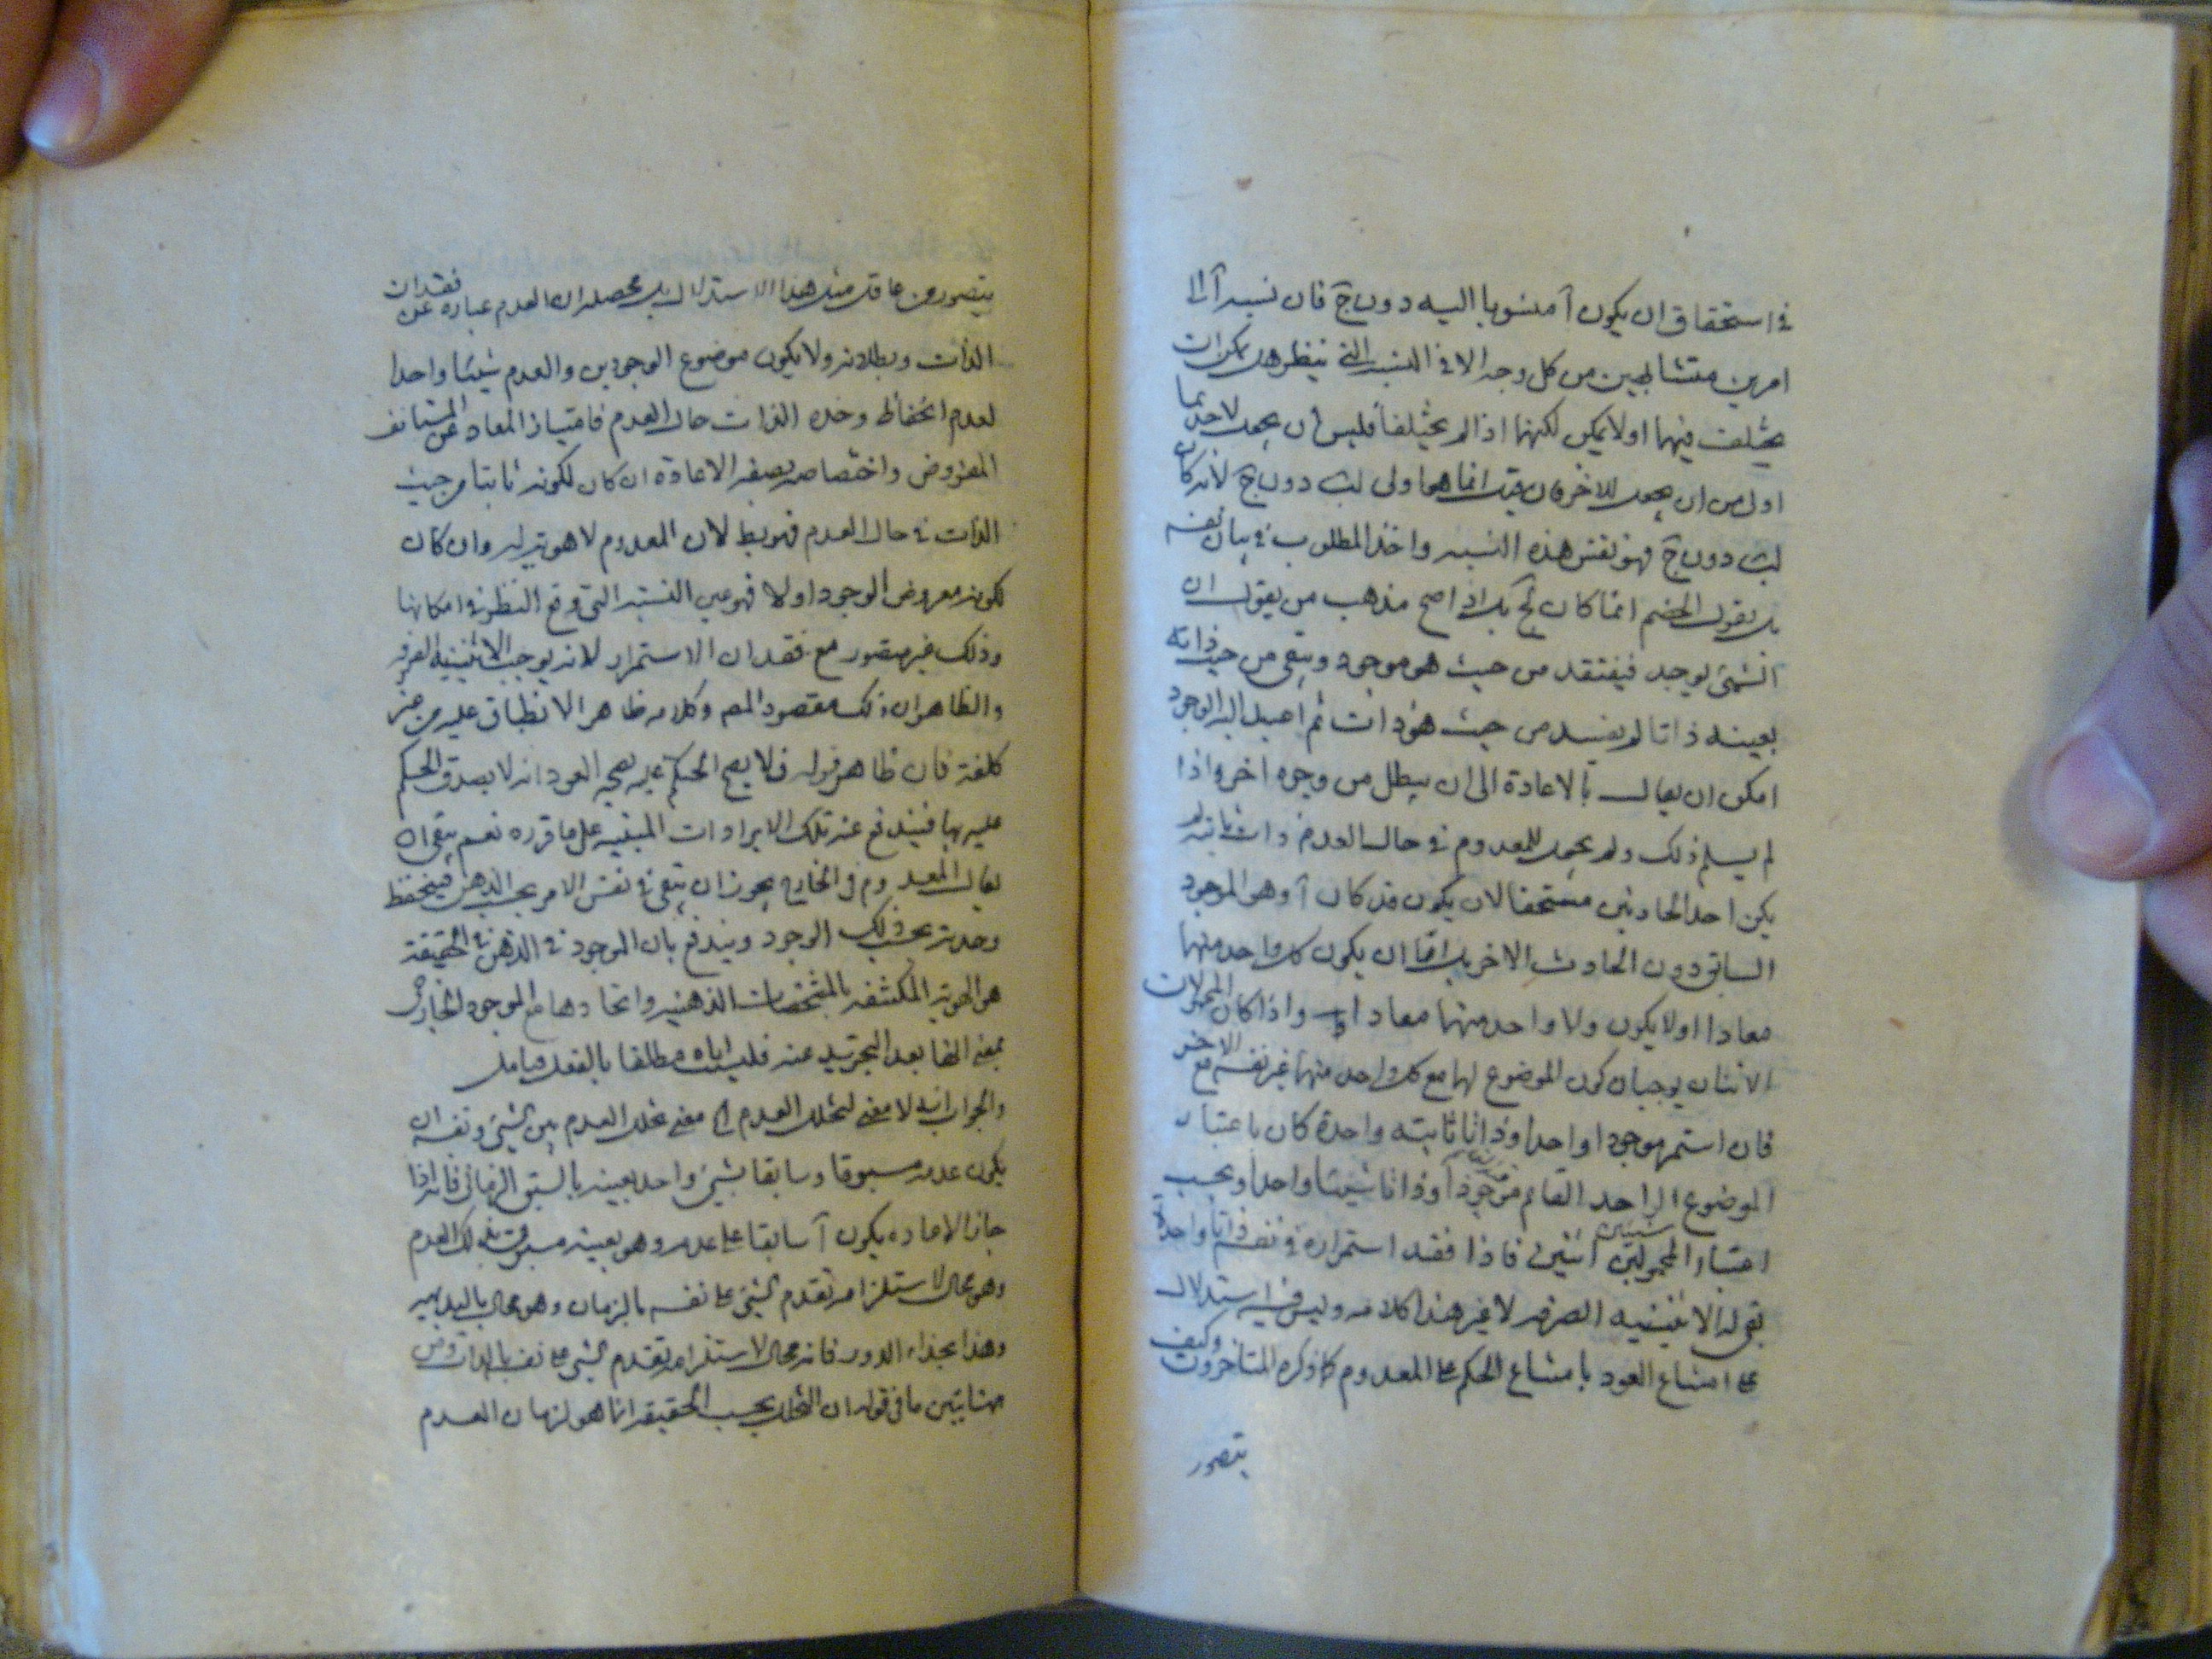 في استحقاق ان يكون آ منسوبا اليه دون ج فان نسبة آ الى
امرين متشابهين من كل وجه الا في النسبة التي ينظر هل يمكن ان
يختلف فيهما او لا يمكن لكنهما اذا لم يختلفا فليس ان يجعل لاحدهما
اولى من ان يجعل للآخر فان قيل انما هو اولى لب دون ج لانه كان
لب دون ج فهو نفس هذه النسبة واخذ المطلوب في بيان نفسه
بل يقول الخصم انما كان لج بل اذا صح مذهب من يقول ان
الشئ يوجد فيفتقد من حيث هو موجود ويبقى من حيث ذاته
بعينه ذاتا لم يفسد من حيث هو ذات ثم اعيد اليه الوجود
امكن ان يقال بالاعادة الى ان يبطل من وجوه اخر واذا
لم يسلم ذلك ولم يجعل للمعدوم في حال العدم ذات ثابتة لم
يكن احد الحادثين مستحقا لان يكون قد كان آ وهو الموجود
السابق دون الحادث الاخر بل اما ان يكون كل واحد منهما
معادا او لا يكون ولا واحد منهما معادا واذا كان المحمولان
الاثنان يوجبان كون الموضوع لهما مع كل واحد منهما غير نفسه مع الاخر
فان استمر موجودا واحدا وذاتا ثابتة واحدة كان باعتبار
الموضوع الواحد القائم موجودا وذاتا شيئا واحدا وبحسب
اعتبار المحمولين شيئين اثنين فاذا فقد استمراره في نفسه ذاتا واحدة
بقي له الاثنينية الصرفة لا غير هذا كلامه وليس فيه استدلال
على امتناع العود بامتناع الحكم على المعدوم كما ذكره المتاخرون وكيف
يتصور
يتصور من عاقل مثل هذا الاستدلال بل محصله ان العدم عبارة عن فقدان
الذات وبطلانه ولا يكون موضوع الوجودين والعدم شيئا واحدا
لعدم انحفاظ وحدة الذات حال العدم فامتياز المعاد عن المستانف
المفروض واختصاصه بصفة الاعادة ان كان لكونه ثابتا من حيث
الذات في حال العدم فهو بط لان المعدوم لا هوية له وان كان
لكونه معروض الوجود اولا فهو عين النسبة التي وقع النظر في امكانها
وذلك غير متصور مع فقدان الاستمرار لانه يوجب الاثنينية الصرفة
والظاهر ان ذلك مقصود المصـ وكلامه ظاهر الانطباق عليه من غير
كلفة فان ظاهر قوله فلا يصح الحكم عليه بصحة العود انه لا يصدق الحكم
عليه بها فيندفع عنه تلك الايرادات المبنية على ما قرره نعم بقي ان
يقال المعدوم في الخارج يجوز ان يبقى في نفس الامر بحسب الذهن فينحفظ
وحدته بحسب ذلك الوجود ويندفع بان الموجود في الذهن في الحقيقة
هو الهوية المكتنفة بالمشخصات الذهنية واتحادها مع الموجود الخارجي
بمعنى انها بعد التجريد عنه فليست اياه مطلقا بالفعل فتامل
والجواب انه لا معنى لتخلل العدم اي معنى تخلل العدم بين الشئ ونفسه ان
يكون عدمه مسبوقا وسابقا بشئ واحد بعينه بالسبق الزماني فانه اذا
جاز الاعادة يكون آ سابقا على عدمه وهو بعينه مسبوق بذلك العدم
وهو محال لاستلزامه تقدم الشئ على نفسه بالزمان وهو محال بالبديهة
وهذا بحذاء الدور فانه محال لاستلزامه تقدم الشئ على نفسه بالذات ومن
ههنا يتبين ما في قوله ان التخلل بحسب الحقيقة انما هو لزمان العدم